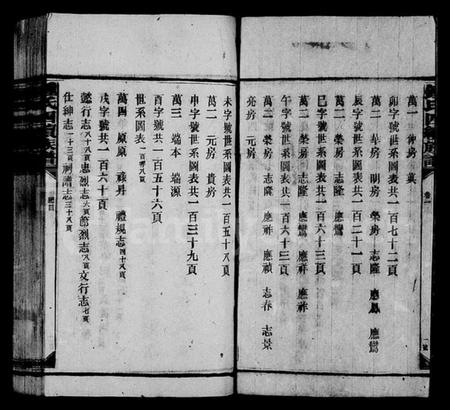 萬一 仲房 蓂
卯字號世系圖表共一百七十二頁
萬二 華房 明房 榮房 志隆 應鳳 應鸞
辰字號世系圖表共一百二十一頁
萬二 榮房 志隆 應鸞
巳字號世系圖表共一百六十三頁
萬二 榮房 志隆 應鸞 應祥
午字號世系圖表共一百六十三頁
萬二 榮房 志隆 應祥 應禎 志春 志景
亮房 元房
未字號世系圖表共一百五十八頁
萬二 元房 貴房
申字號世系圖表共一百三十九頁
萬三 端本 端源
酉字號世系圖表共一百五十六頁
世系圖表
萬四 原 原 祿昇 禮規志四十八頁
戌字號共一百六十頁
懿行志八十八頁 忠烈志 頁 節烈志八十八頁 文行志七頁
仕紳志二十三頁 祠 志三十八頁
卷一